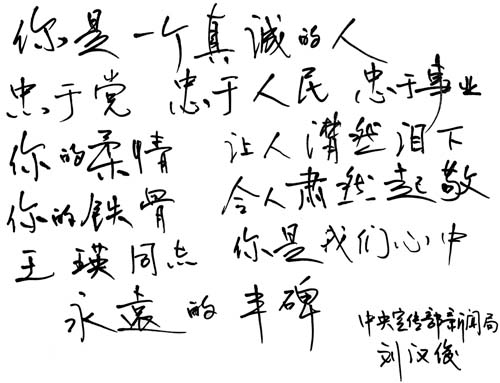 你是一个真诚的人
忠于党 忠于人民 忠于事业
你的柔情 让人潸然泪下
你的铁骨 令人肃然起敬
王瑛同志 你是我们心中
永遠的丰碑
中央宣传部新闻局
刘汉俊